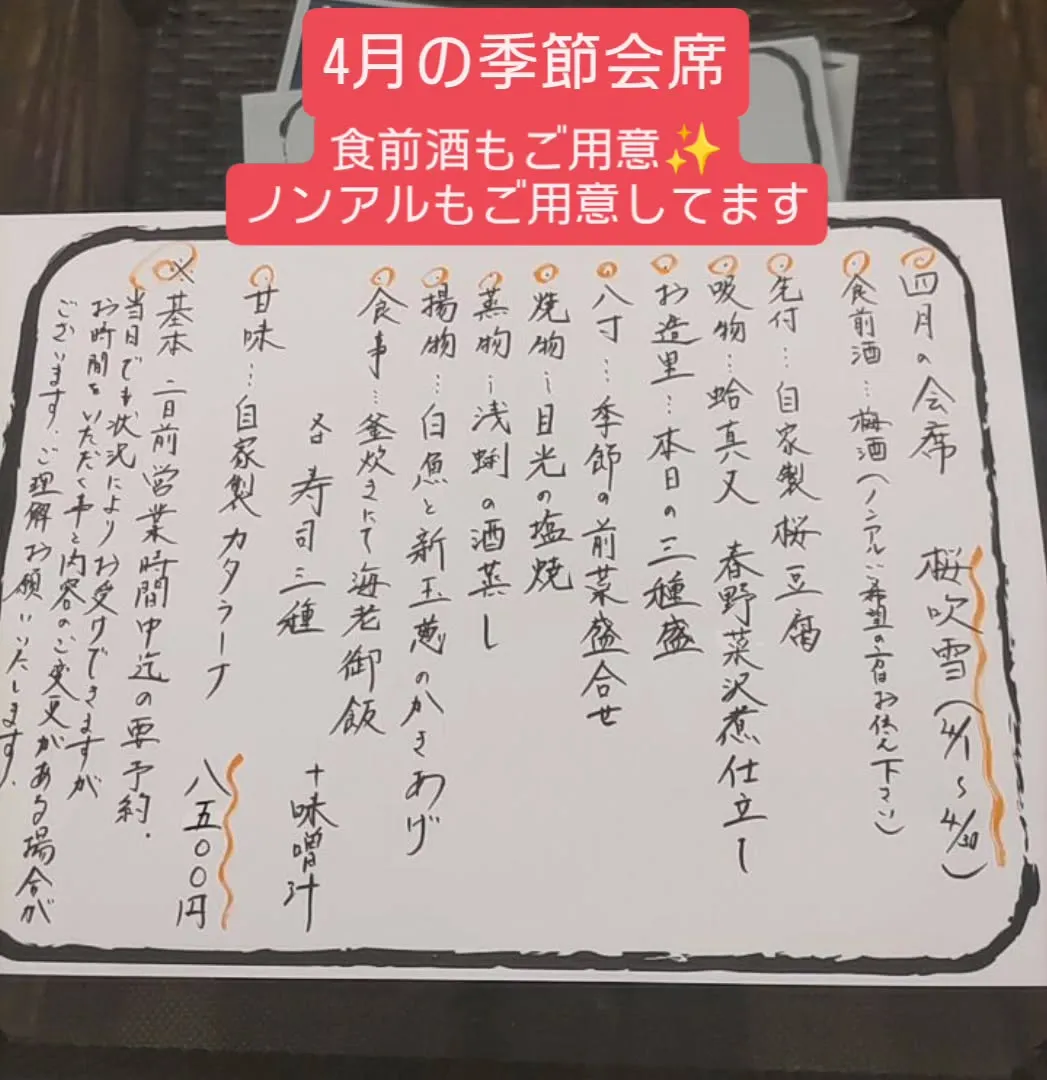 4月の季節会席
食前酒もご用意✨
ノンアルもご用意してます
四月の会席 桜吹雪(4/1〜4/30)
食前酒…梅酒(ノンアルご希望の方はお伝え下さい)
先付…自家製 桜豆腐
吸物…蛤真又 春野菜沢煮仕立て
お造里…本日の三種盛
八寸…季節の前菜盛合せ
焼物…目光の塩焼
蒸物…浅蜊の酒蒸し
揚物…白魚と新玉葱のかきあげ
食事…釜炊きにて海老御飯
寿司三種 +味噌汁
甘味…自家製カタラーナ
八五〇〇円
※基本 二日前営業時間中迄の要予約.
当日でも状況によりお受けできますが
お時間をいただく事と内容のご変更がある場合が
ございます.ご理解お願いいたします.